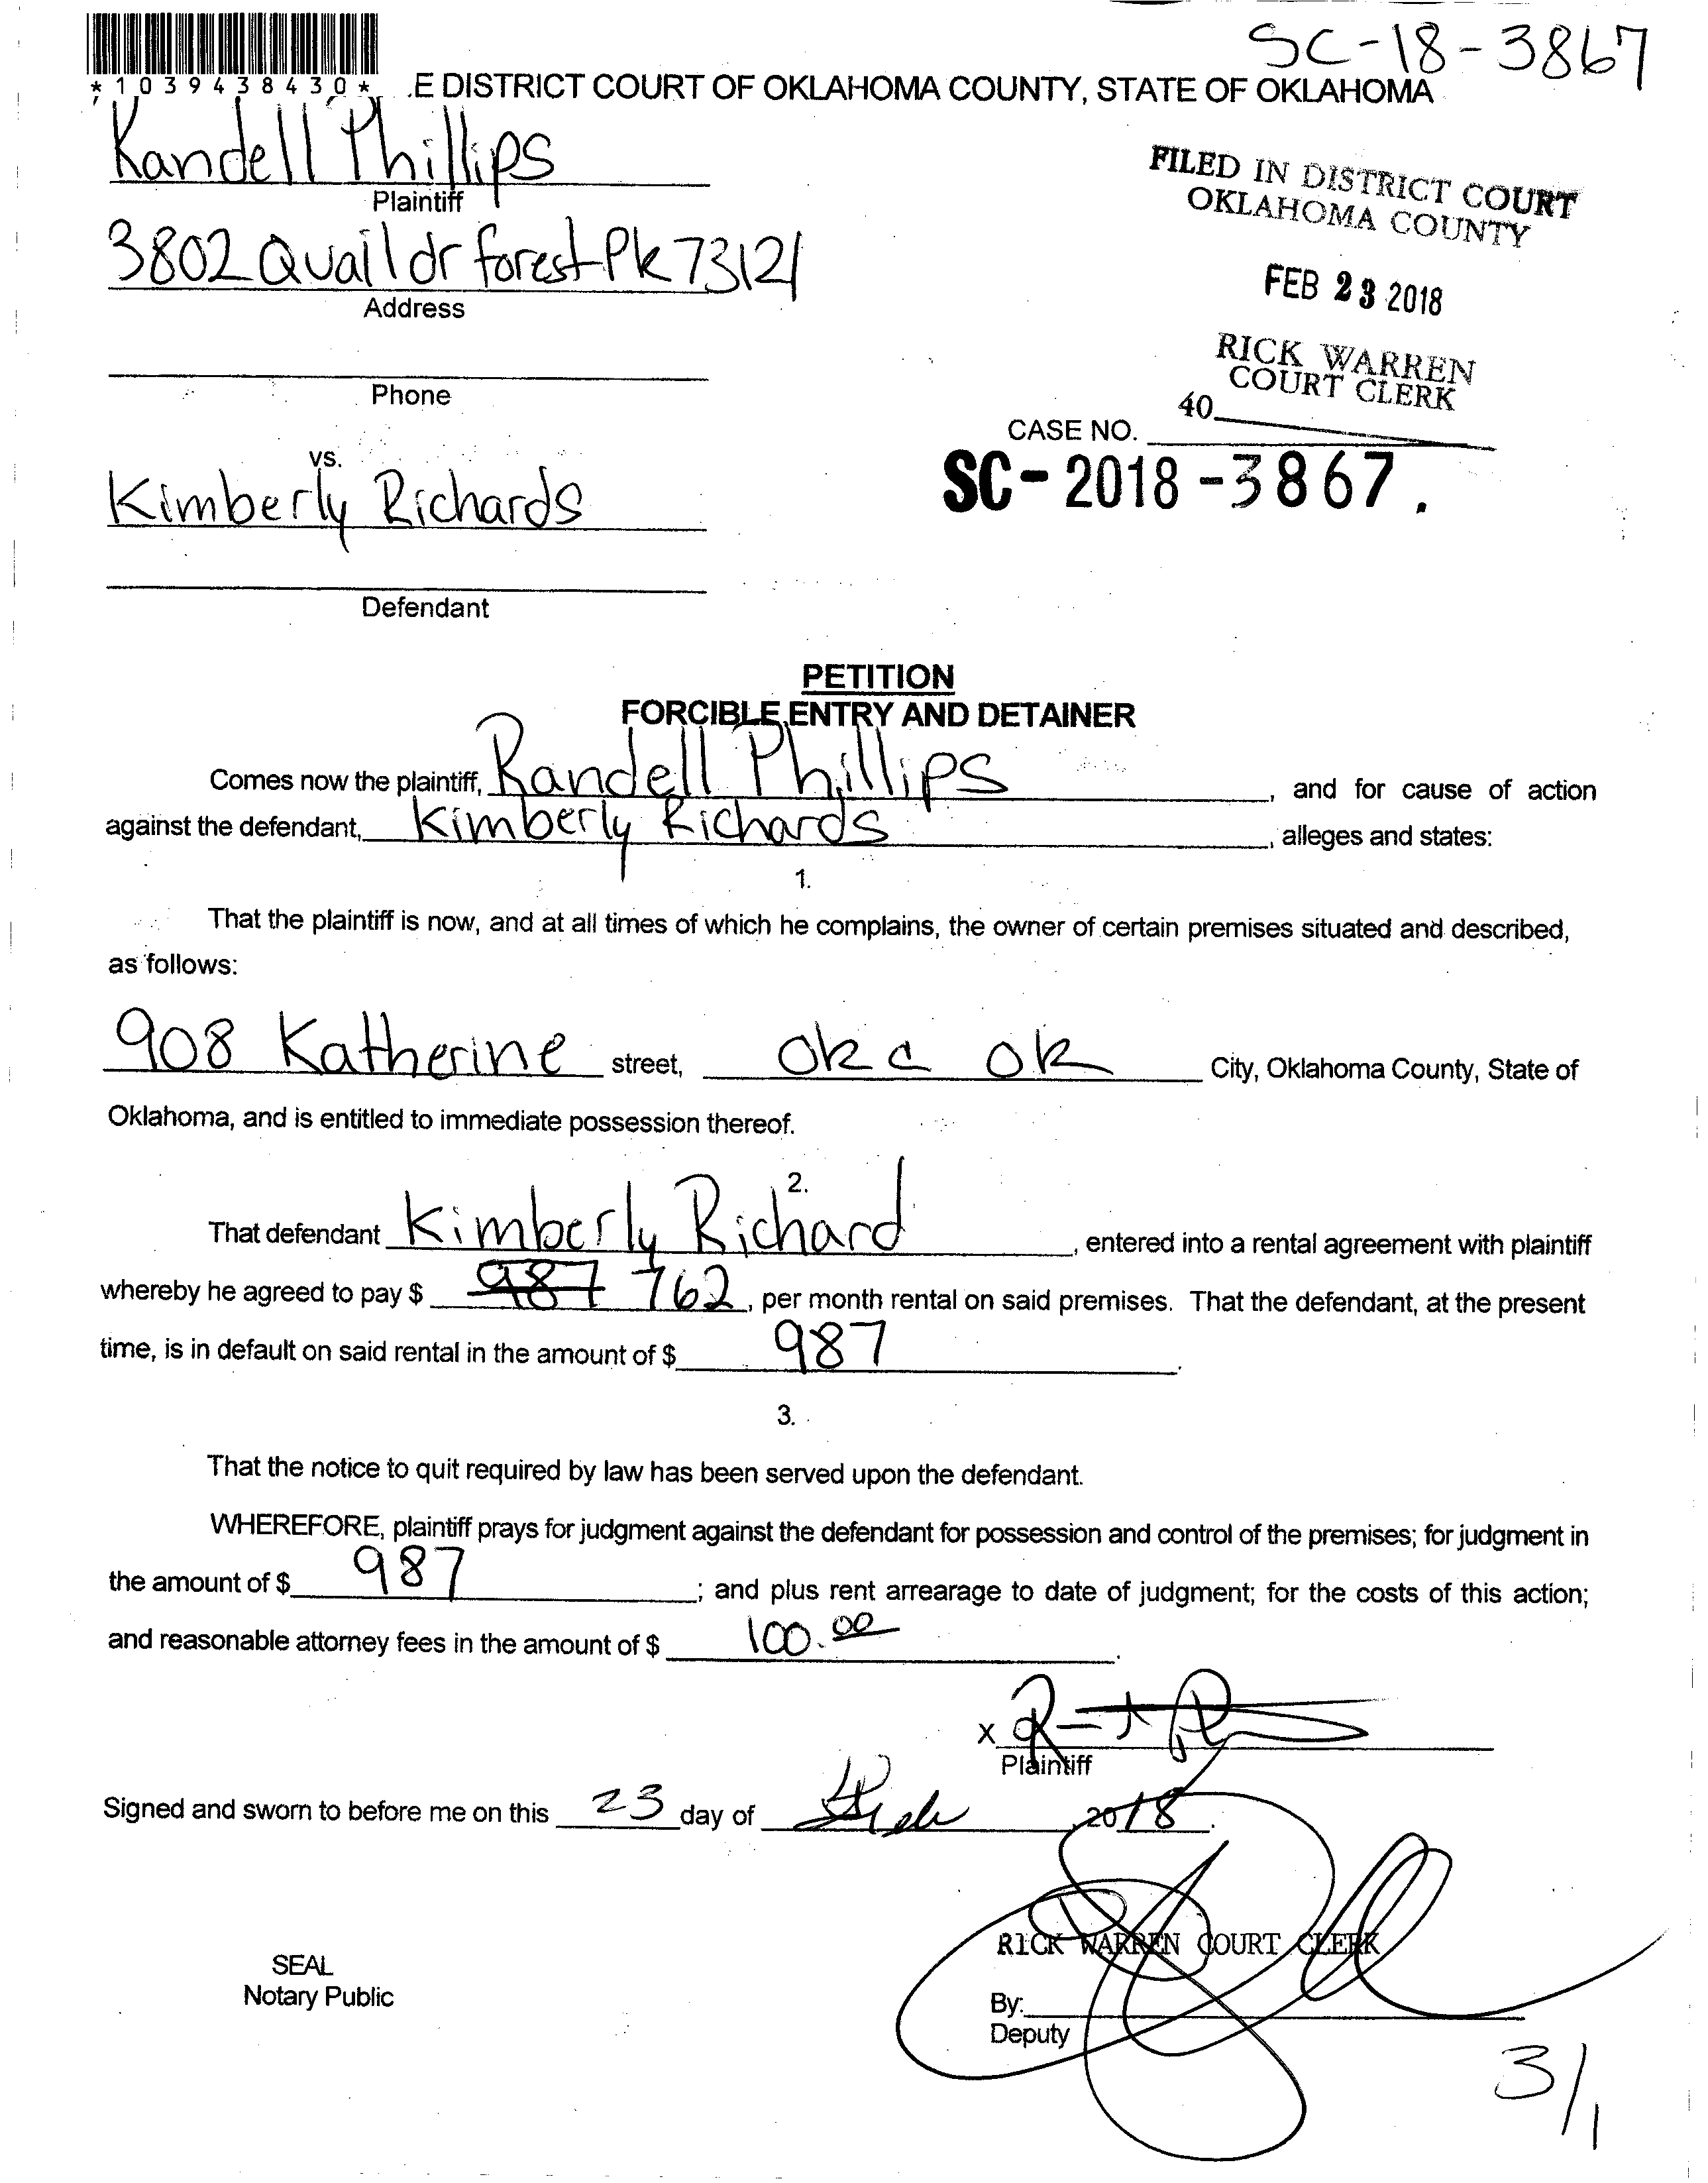 SC-18-3867
*1039438430* .E DISTRICT COURT OF OKLAHOMA COUNTY, STATE OF OKLAHOMA
Randell Phillips
Plaintiff
3802 Quail dr forest Pk 73121
Address
Phone
FILED IN DISTRICT COURT
OKLAHOMA COUNTY
FEB 23 2018
RICK WARREN
COURT CLERK
40
CASE NO.
SC-2018-3867.
vs.
Kimberly Richards
Defendant
PETITION
FORCIBLE ENTRY AND DETAINER
Comes now the plaintiff, Randell Phillips, and for cause of action
against the defendant, Kimberly Richards, alleges and states:
1.
That the plaintiff is now, and at all times of which he complains, the owner of certain premises situated and described,
as follows:
908 Katherine street, Okc Ok City, Oklahoma County, State of
Oklahoma, and is entitled to immediate possession thereof.
2.
That defendant Kimberly Richard, entered into a rental agreement with plaintiff
whereby he agreed to pay $ 987 762, per month rental on said premises. That the defendant, at the present
time, is in default on said rental in the amount of $ 987.
3.
That the notice to quit required by law has been served upon the defendant.
WHEREFORE, plaintiff prays for judgment against the defendant for possession and control of the premises; for judgment in
the amount of $ 987; and plus rent arrearage to date of judgment; for the costs of this action;
and reasonable attorney fees in the amount of $ 100.00.
X
Plaintiff
Signed and sworn to before me on this 23 day of , 2018.
RICK WARREN COURT CLERK
SEAL
Notary Public
By:
Deputy
3/1